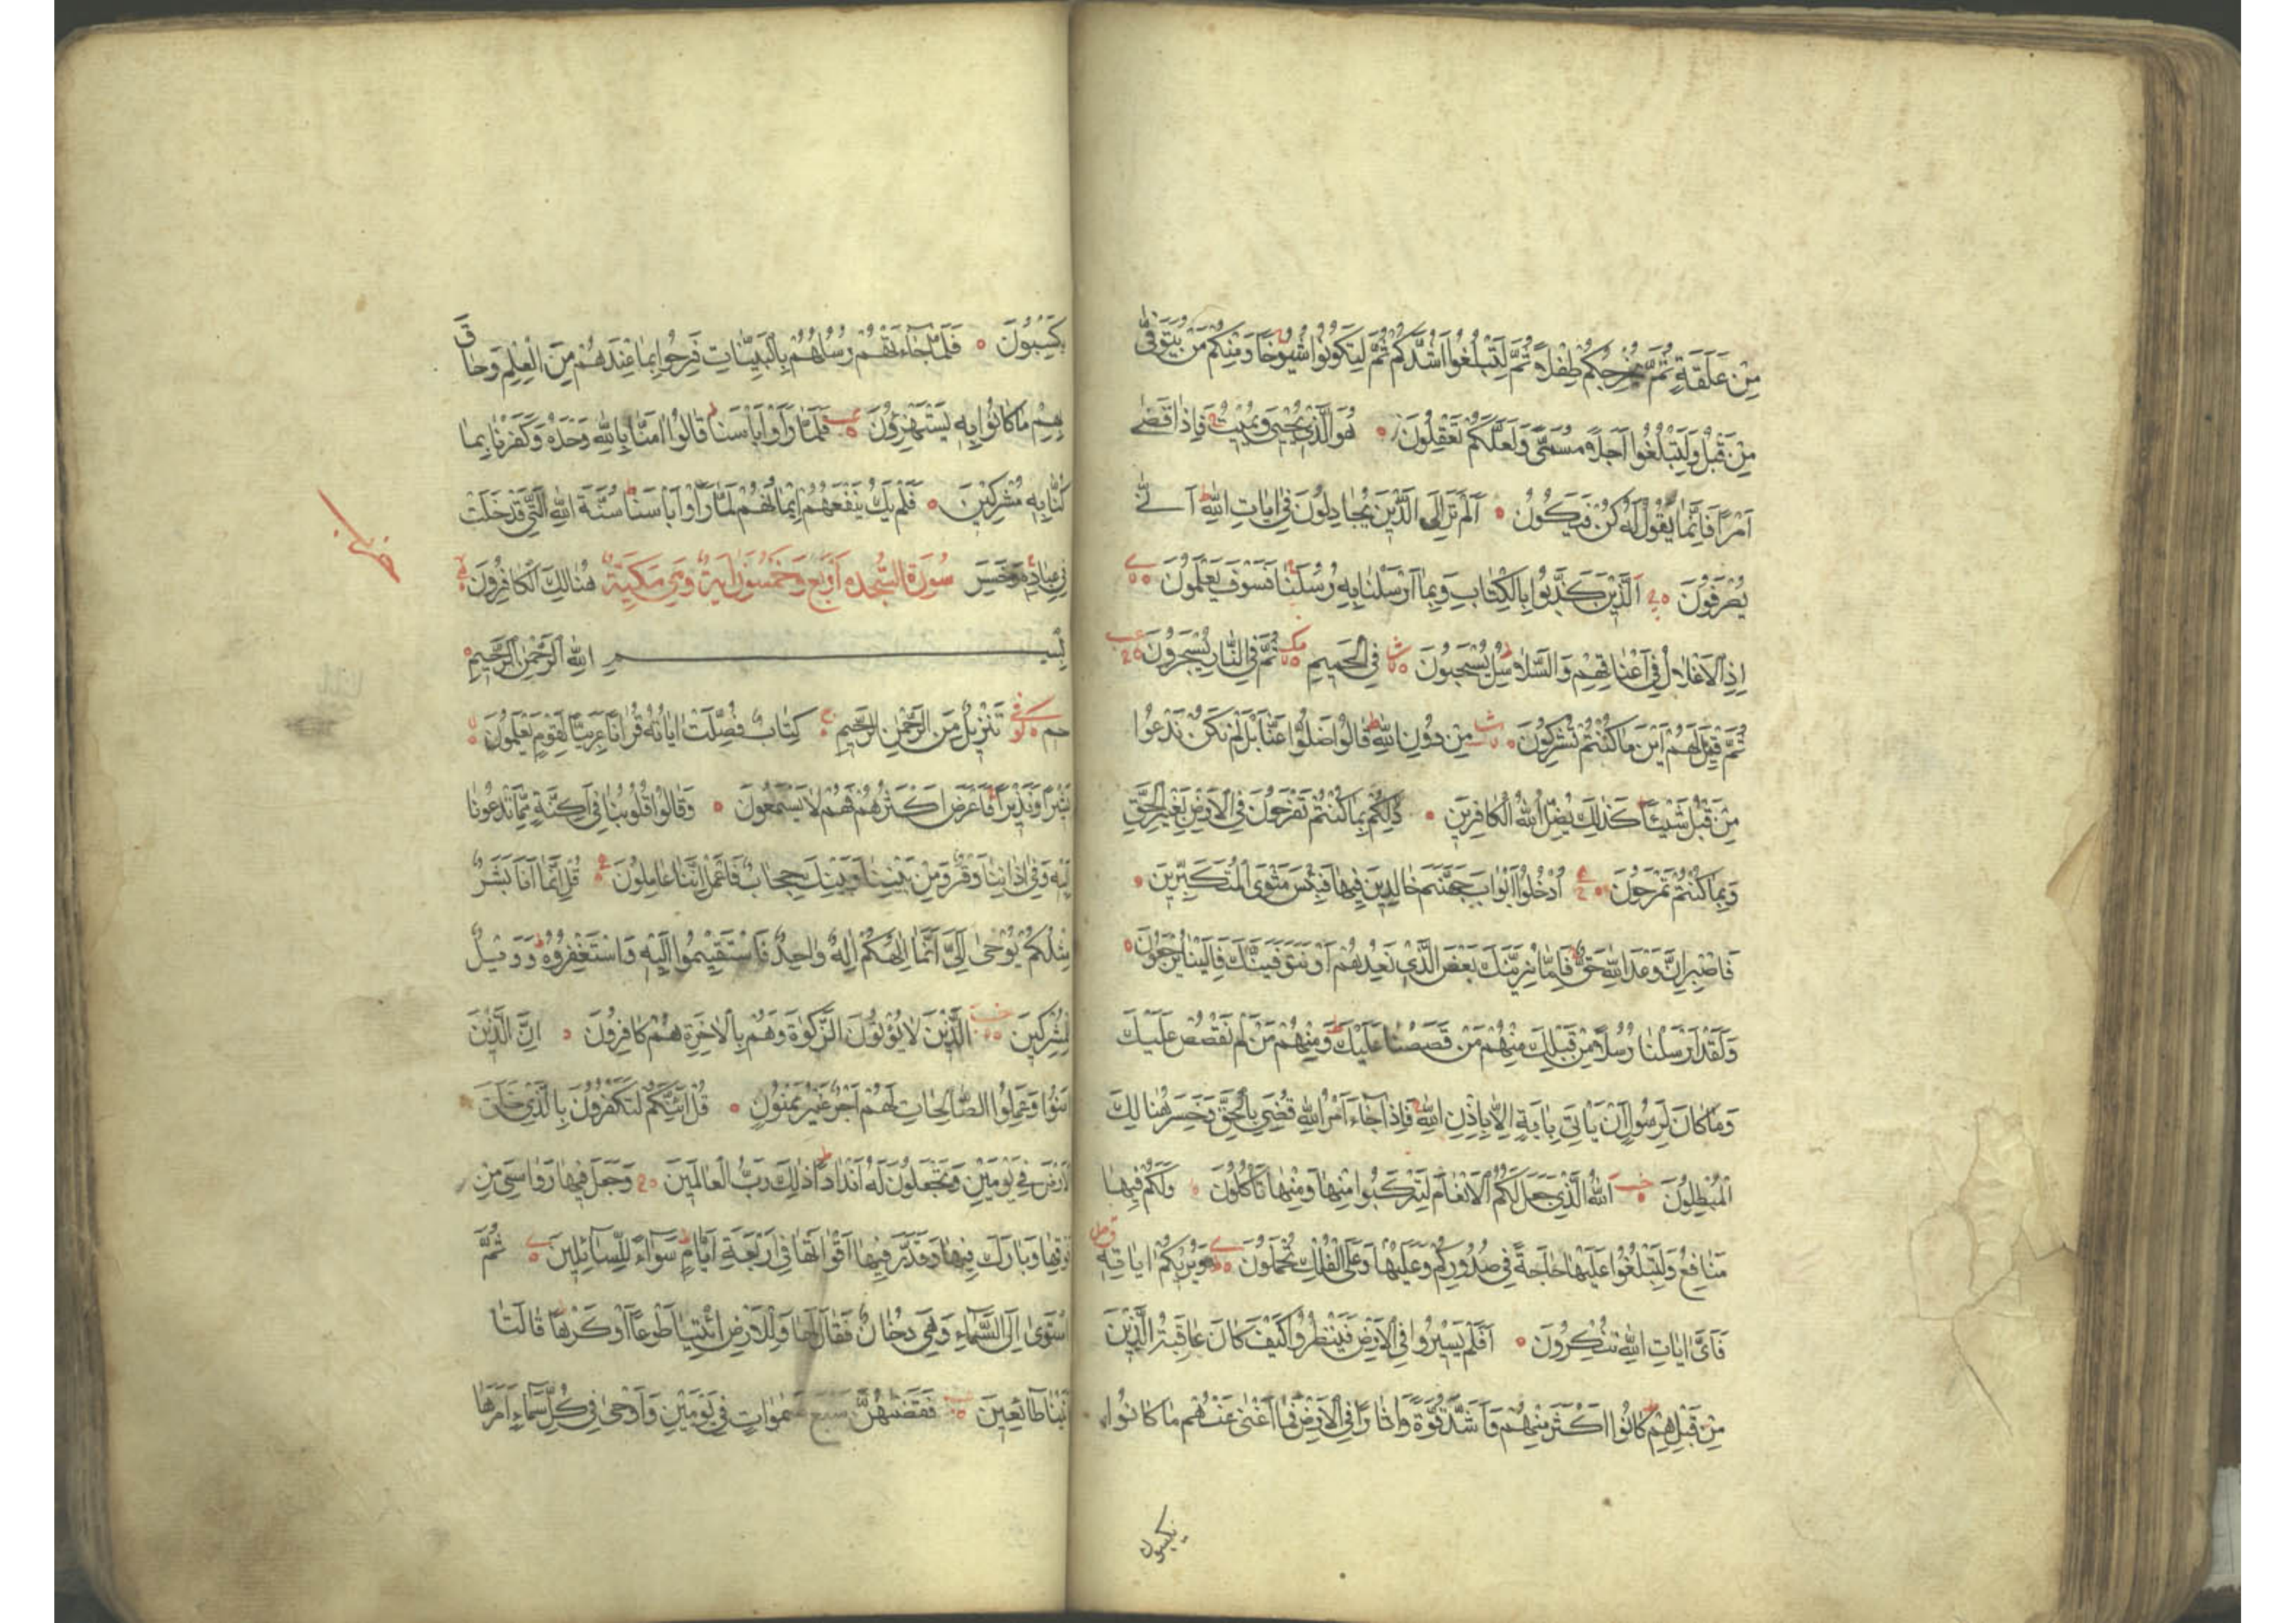 مِنْ عَلَقَةٍ ثُمَّ يُخْرِجُكُمْ طِفْلًا ثُمَّ لِتَبْلُغُوا اَشُدَّكُمْ ثُمَّ لِتَكُونُوا شُيُوخًا وَمِنْكُمْ مَنْ يُتَوَفّٰى
مِنْ قَبْلُ وَلِتَبْلُغُوا اَجَلًا مُسَمًّى وَلَعَلَّكُمْ تَعْقِلُونَ هُوَ الَّذِي يُحْيِي وَيُمِيتُ فَاِذَا قَضٰى
اَمْرًا فَاِنَّمَا يَقُولُ لَهُ كُنْ فَيَكُونُ اَلَمْ تَرَ اِلَى الَّذِينَ يُجَادِلُونَ فِي اٰيَاتِ اللّٰهِ اَنّٰى
يُصْرَفُونَ اَلَّذِينَ كَذَّبُوا بِالْكِتَابِ وَبِمَا اَرْسَلْنَا بِهِ رُسُلَنَا فَسَوْفَ يَعْلَمُونَ
اِذِ الْاَغْلَالُ فِي اَعْنَاقِهِمْ وَالسَّلَاسِلُ يُسْحَبُونَ فِي الْحَمِيمِ ثُمَّ فِي النَّارِ يُسْجَرُونَ
ثُمَّ قِيلَ لَهُمْ اَيْنَ مَا كُنْتُمْ تُشْرِكُونَ مِنْ دُونِ اللّٰهِ قَالُوا ضَلُّوا عَنَّا بَلْ لَمْ نَكُنْ نَدْعُوا
مِنْ قَبْلُ شَيْئًا كَذٰلِكَ يُضِلُّ اللّٰهُ الْكَافِرِينَ ذٰلِكُمْ بِمَا كُنْتُمْ تَفْرَحُونَ فِي الْاَرْضِ بِغَيْرِ الْحَقِّ
وَبِمَا كُنْتُمْ تَمْرَحُونَ اُدْخُلُوا اَبْوَابَ جَهَنَّمَ خَالِدِينَ فِيهَا فَبِئْسَ مَثْوَى الْمُتَكَبِّرِينَ
فَاصْبِرْ اِنَّ وَعْدَ اللّٰهِ حَقٌّ فَاِمَّا نُرِيَنَّكَ بَعْضَ الَّذِي نَعِدُهُمْ اَوْ نَتَوَفَّيَنَّكَ فَاِلَيْنَا يُرْجَعُونَ
وَلَقَدْ اَرْسَلْنَا رُسُلًا مِنْ قَبْلِكَ مِنْهُمْ مَنْ قَصَصْنَا عَلَيْكَ وَمِنْهُمْ مَنْ لَمْ نَقْصُصْ عَلَيْكَ
وَمَا كَانَ لِرَسُولٍ اَنْ يَاْتِيَ بِاٰيَةٍ اِلَّا بِاِذْنِ اللّٰهِ فَاِذَا جَاءَ اَمْرُ اللّٰهِ قُضِيَ بِالْحَقِّ وَخَسِرَ هُنَالِكَ
الْمُبْطِلُونَ اَللّٰهُ الَّذِي جَعَلَ لَكُمُ الْاَنْعَامَ لِتَرْكَبُوا مِنْهَا وَمِنْهَا تَاْكُلُونَ وَلَكُمْ فِيهَا
مَنَافِعُ وَلِتَبْلُغُوا عَلَيْهَا حَاجَةً فِي صُدُورِكُمْ وَعَلَيْهَا وَعَلَى الْفُلْكِ تُحْمَلُونَ وَيُرِيكُمْ اٰيَاتِهِ
فَاَيَّ اٰيَاتِ اللّٰهِ تُنْكِرُونَ اَفَلَمْ يَسِيرُوا فِي الْاَرْضِ فَيَنْظُرُوا كَيْفَ كَانَ عَاقِبَةُ الَّذِينَ
مِنْ قَبْلِهِمْ كَانُوا اَكْثَرَ مِنْهُمْ وَاَشَدَّ قُوَّةً وَاٰثَارًا فِي الْاَرْضِ فَمَا اَغْنٰى عَنْهُمْ مَا كَانُوا
يكسبون
يَكْسِبُونَ فَلَمَّا جَاءَتْهُمْ رُسُلُهُمْ بِالْبَيِّنَاتِ فَرِحُوا بِمَا عِنْدَهُمْ مِنَ الْعِلْمِ وَحَاقَ
بِهِمْ مَا كَانُوا بِهِ يَسْتَهْزِؤُنَ فَلَمَّا رَاَوْا بَاْسَنَا قَالُوا اٰمَنَّا بِاللّٰهِ وَحْدَهُ وَكَفَرْنَا بِمَا
كُنَّا بِهِ مُشْرِكِينَ فَلَمْ يَكُ يَنْفَعُهُمْ اِيمَانُهُمْ لَمَّا رَاَوْا بَاْسَنَا سُنَّةَ اللّٰهِ الَّتِي قَدْ خَلَتْ
فِي عِبَادِهِ وَخَسِرَ سُورَةُ السَّجْدَه اَرْبَعٌ وَخَمْسُونَ اٰيَةً وَهِيَ مَكِّيَّةٌ هُنَالِكَ الْكَافِرُونَ
بِسْمِ اللّٰهِ الرَّحْمٰنِ الرَّحِيمِ
حٰم تَنْزِيلٌ مِنَ الرَّحْمٰنِ الرَّحِيمِ كِتَابٌ فُصِّلَتْ اٰيَاتُهُ قُرْاٰنًا عَرَبِيًّا لِقَوْمٍ يَعْلَمُونَ
بَشِيرًا وَنَذِيرًا فَاَعْرَضَ اَكْثَرُهُمْ فَهُمْ لَا يَسْمَعُونَ وَقَالُوا قُلُوبُنَا فِي اَكِنَّةٍ مِمَّا تَدْعُونَا
اِلَيْهِ وَفِي اٰذَانِنَا وَقْرٌ وَمِنْ بَيْنِنَا وَبَيْنِكَ حِجَابٌ فَاعْمَلْ اِنَّنَا عَامِلُونَ قُلْ اِنَّمَا اَنَا بَشَرٌ
مِثْلُكُمْ يُوحٰى اِلَيَّ اَنَّمَا اِلٰهُكُمْ اِلٰهٌ وَاحِدٌ فَاسْتَقِيمُوا اِلَيْهِ وَاسْتَغْفِرُوهُ وَوَيْلٌ
لِلْمُشْرِكِينَ الَّذِينَ لَا يُؤْتُونَ الزَّكٰوةَ وَهُمْ بِالْاٰخِرَةِ هُمْ كَافِرُونَ اِنَّ الَّذِينَ
اٰمَنُوا وَعَمِلُوا الصَّالِحَاتِ لَهُمْ اَجْرٌ غَيْرُ مَمْنُونٍ قُلْ اَئِنَّكُمْ لَتَكْفُرُونَ بِالَّذِي خَلَقَ
الْاَرْضَ فِي يَوْمَيْنِ وَتَجْعَلُونَ لَهُ اَنْدَادًا ذٰلِكَ رَبُّ الْعَالَمِينَ وَجَعَلَ فِيهَا رَوَاسِيَ مِنْ
فَوْقِهَا وَبَارَكَ فِيهَا وَقَدَّرَ فِيهَا اَقْوَاتَهَا فِي اَرْبَعَةِ اَيَّامٍ سَوَاءً لِلسَّائِلِينَ ثُمَّ
اسْتَوٰى اِلَى السَّمَاءِ وَهِيَ دُخَانٌ فَقَالَ لَهَا وَلِلْاَرْضِ ائْتِيَا طَوْعًا اَوْ كَرْهًا قَالَتَا
اَتَيْنَا طَائِعِينَ فَقَضٰيهُنَّ سَبْعَ سَمٰوَاتٍ فِي يَوْمَيْنِ وَاَوْحٰى فِي كُلِّ سَمَاءٍ اَمْرَهَا